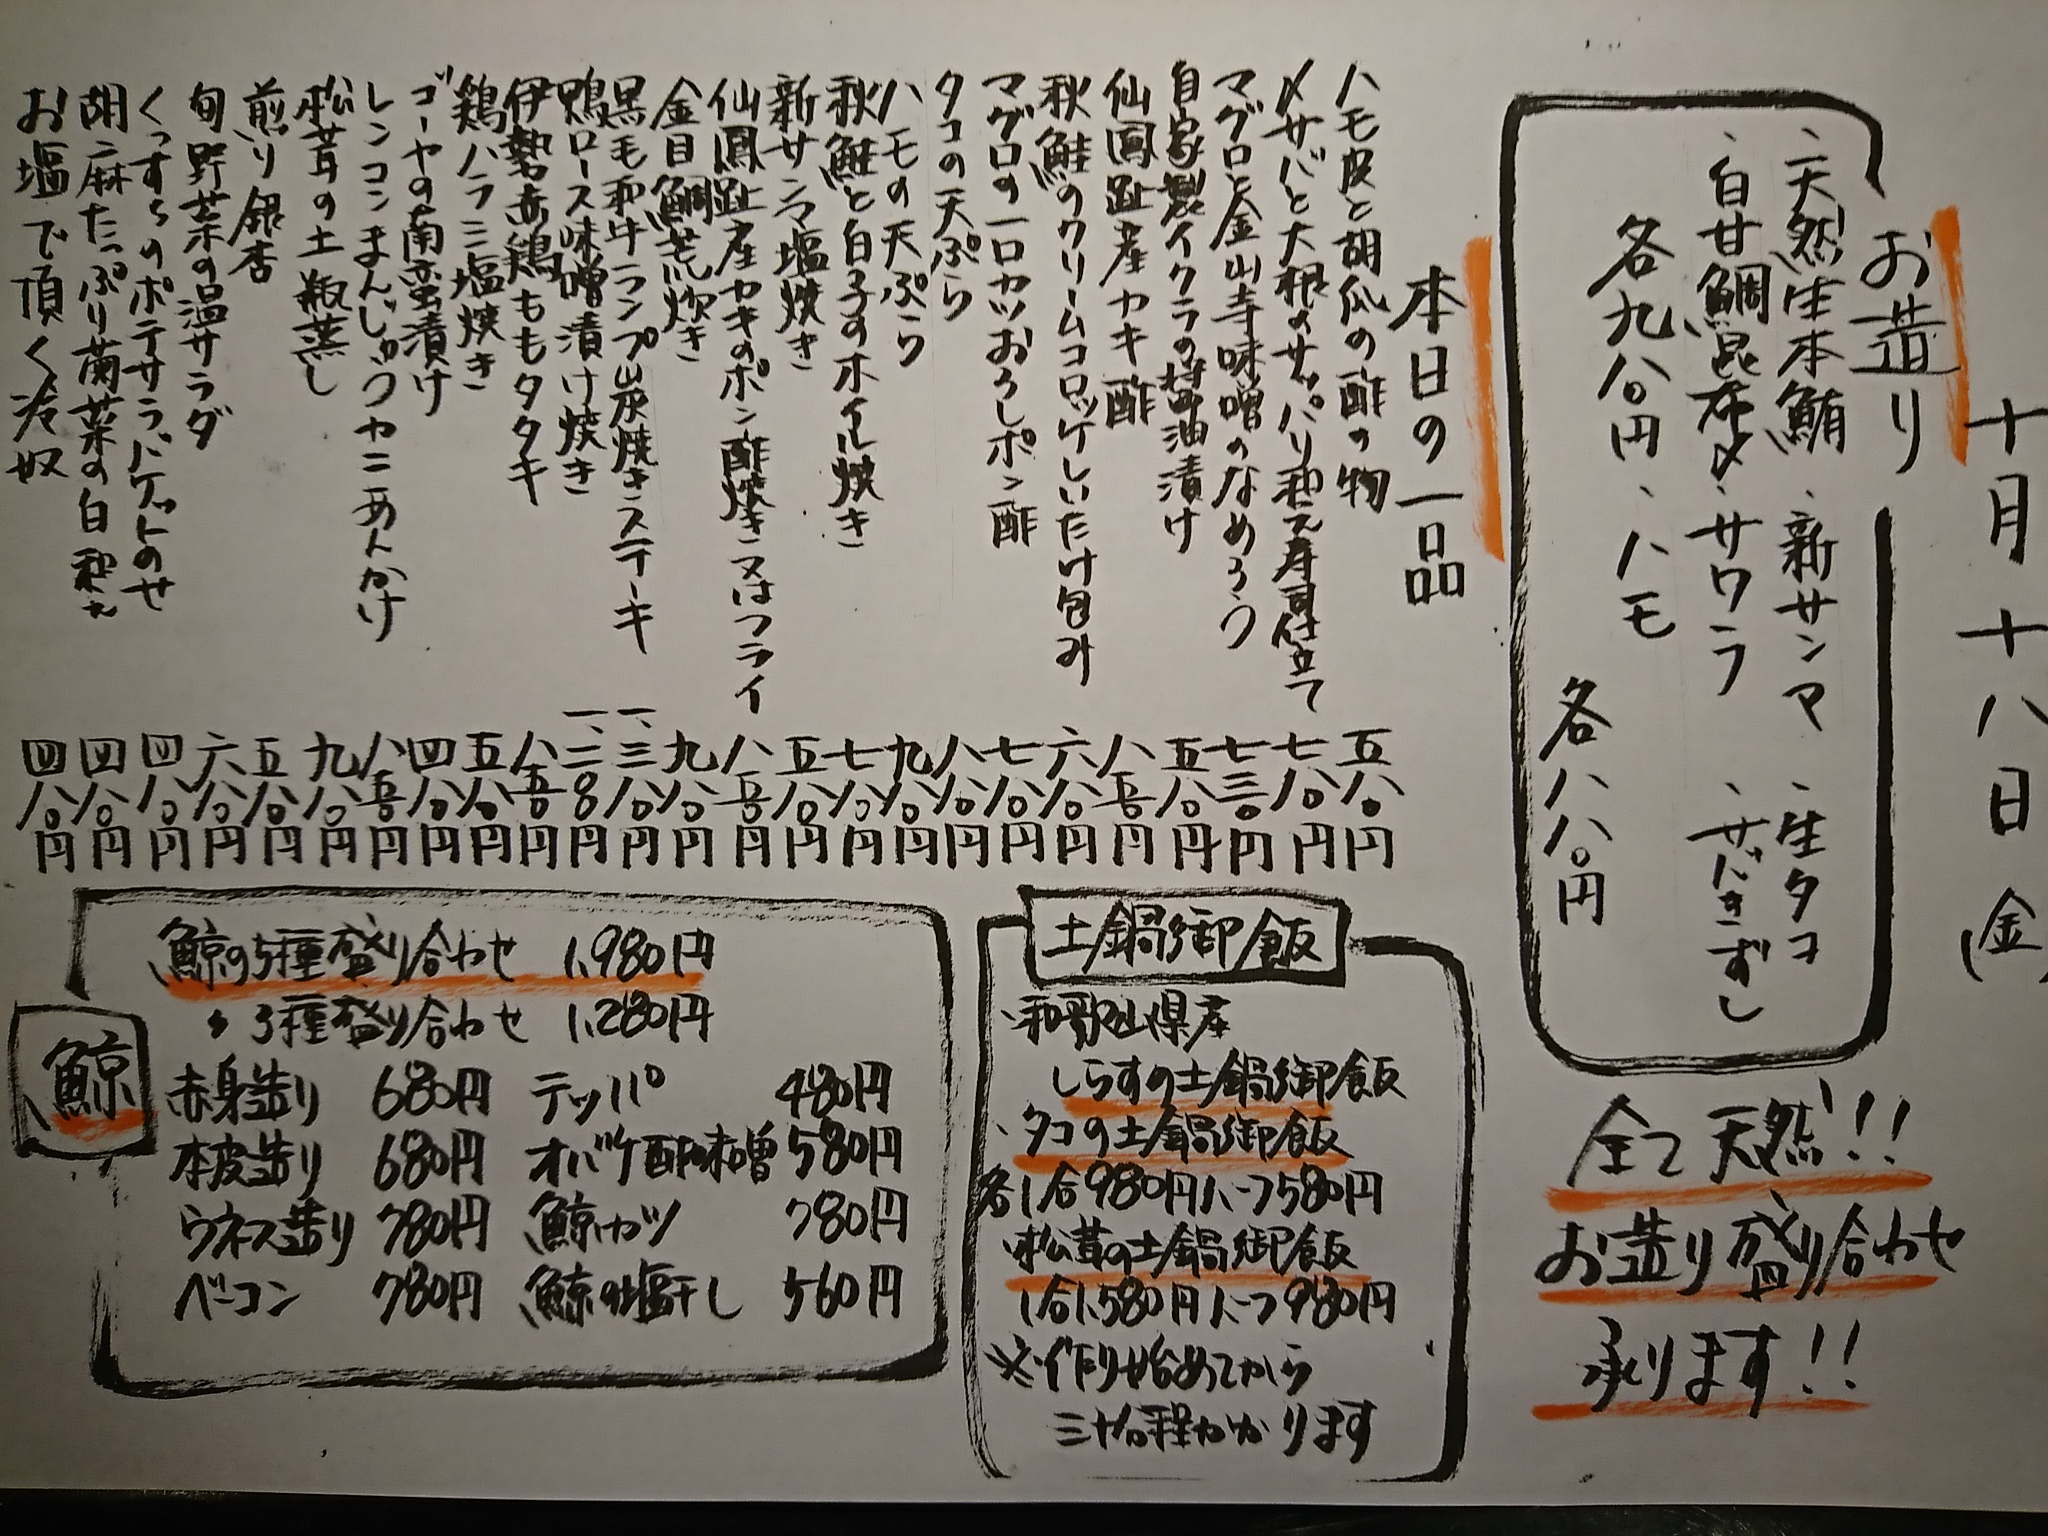 十月十八日(金)
お造り
、天然生本鮪 、新サンマ 、生タコ
、白甘鯛昆布〆 、サワラ 、サバきずし
各九八〇円 、ハモ
各八八〇円
全て天然!!
お造り盛り合わせ
承ります!!
本日の一品
ハモ皮と胡瓜の酢の物 五八〇円
〆サバと大根のサッパリ和え寿司仕立て 七八〇円
マグロと金山寺味噌のなめろう 七三〇円
自家製イクラの醤油漬け 五八〇円
仙鳳趾産カキ酢 八五〇円
秋鮭のクリームコロッケしいたけ包み 六八〇円
マグロの一口カツおろしポン酢 七八〇円
タコの天ぷら 八八〇円
ハモの天ぷら 九八〇円
秋鮭と白子のホイル焼き 七八〇円
新サンマ塩焼き 五八〇円
仙鳳趾産カキのポン酢焼き又はフライ 八五〇円
金目鯛荒炊き 九八〇円
黒毛和牛ランプ炭焼きステーキ 一、三八〇円
鴨ロース味噌漬け焼き 一、二八〇円
伊勢赤鶏ももタタキ 八五〇円
鶏ハラミ塩焼き 五八〇円
ゴーヤの南蛮漬け 四八〇円
レンコンまんじゅうカニあんかけ 八五〇円
松茸の土瓶蒸し 九八〇円
煎り銀杏 五八〇円
旬野菜の温サラダ 六八〇円
くっすらのポテサラバケットのせ 四八〇円
胡麻たっぷり菊菜の白和え 四八〇円
お塩で頂く冷奴 四八〇円
土鍋御飯
、和歌山県産
しらすの土鍋御飯
、タコの土鍋御飯
各1合980円ハーフ580円
、松茸の土鍋御飯
1合1,580円ハーフ980円
※作り始めてから
三十分程かかります
鯨
鯨の5種盛り合わせ 1,980円
〃 3種盛り合わせ 1,280円
赤身造り 680円 テッパ 480円
本皮造り 680円 オバケ酢味噌 580円
ウネス造り 780円 鯨カツ 780円
ベーコン 780円 鯨の塩干し 560円